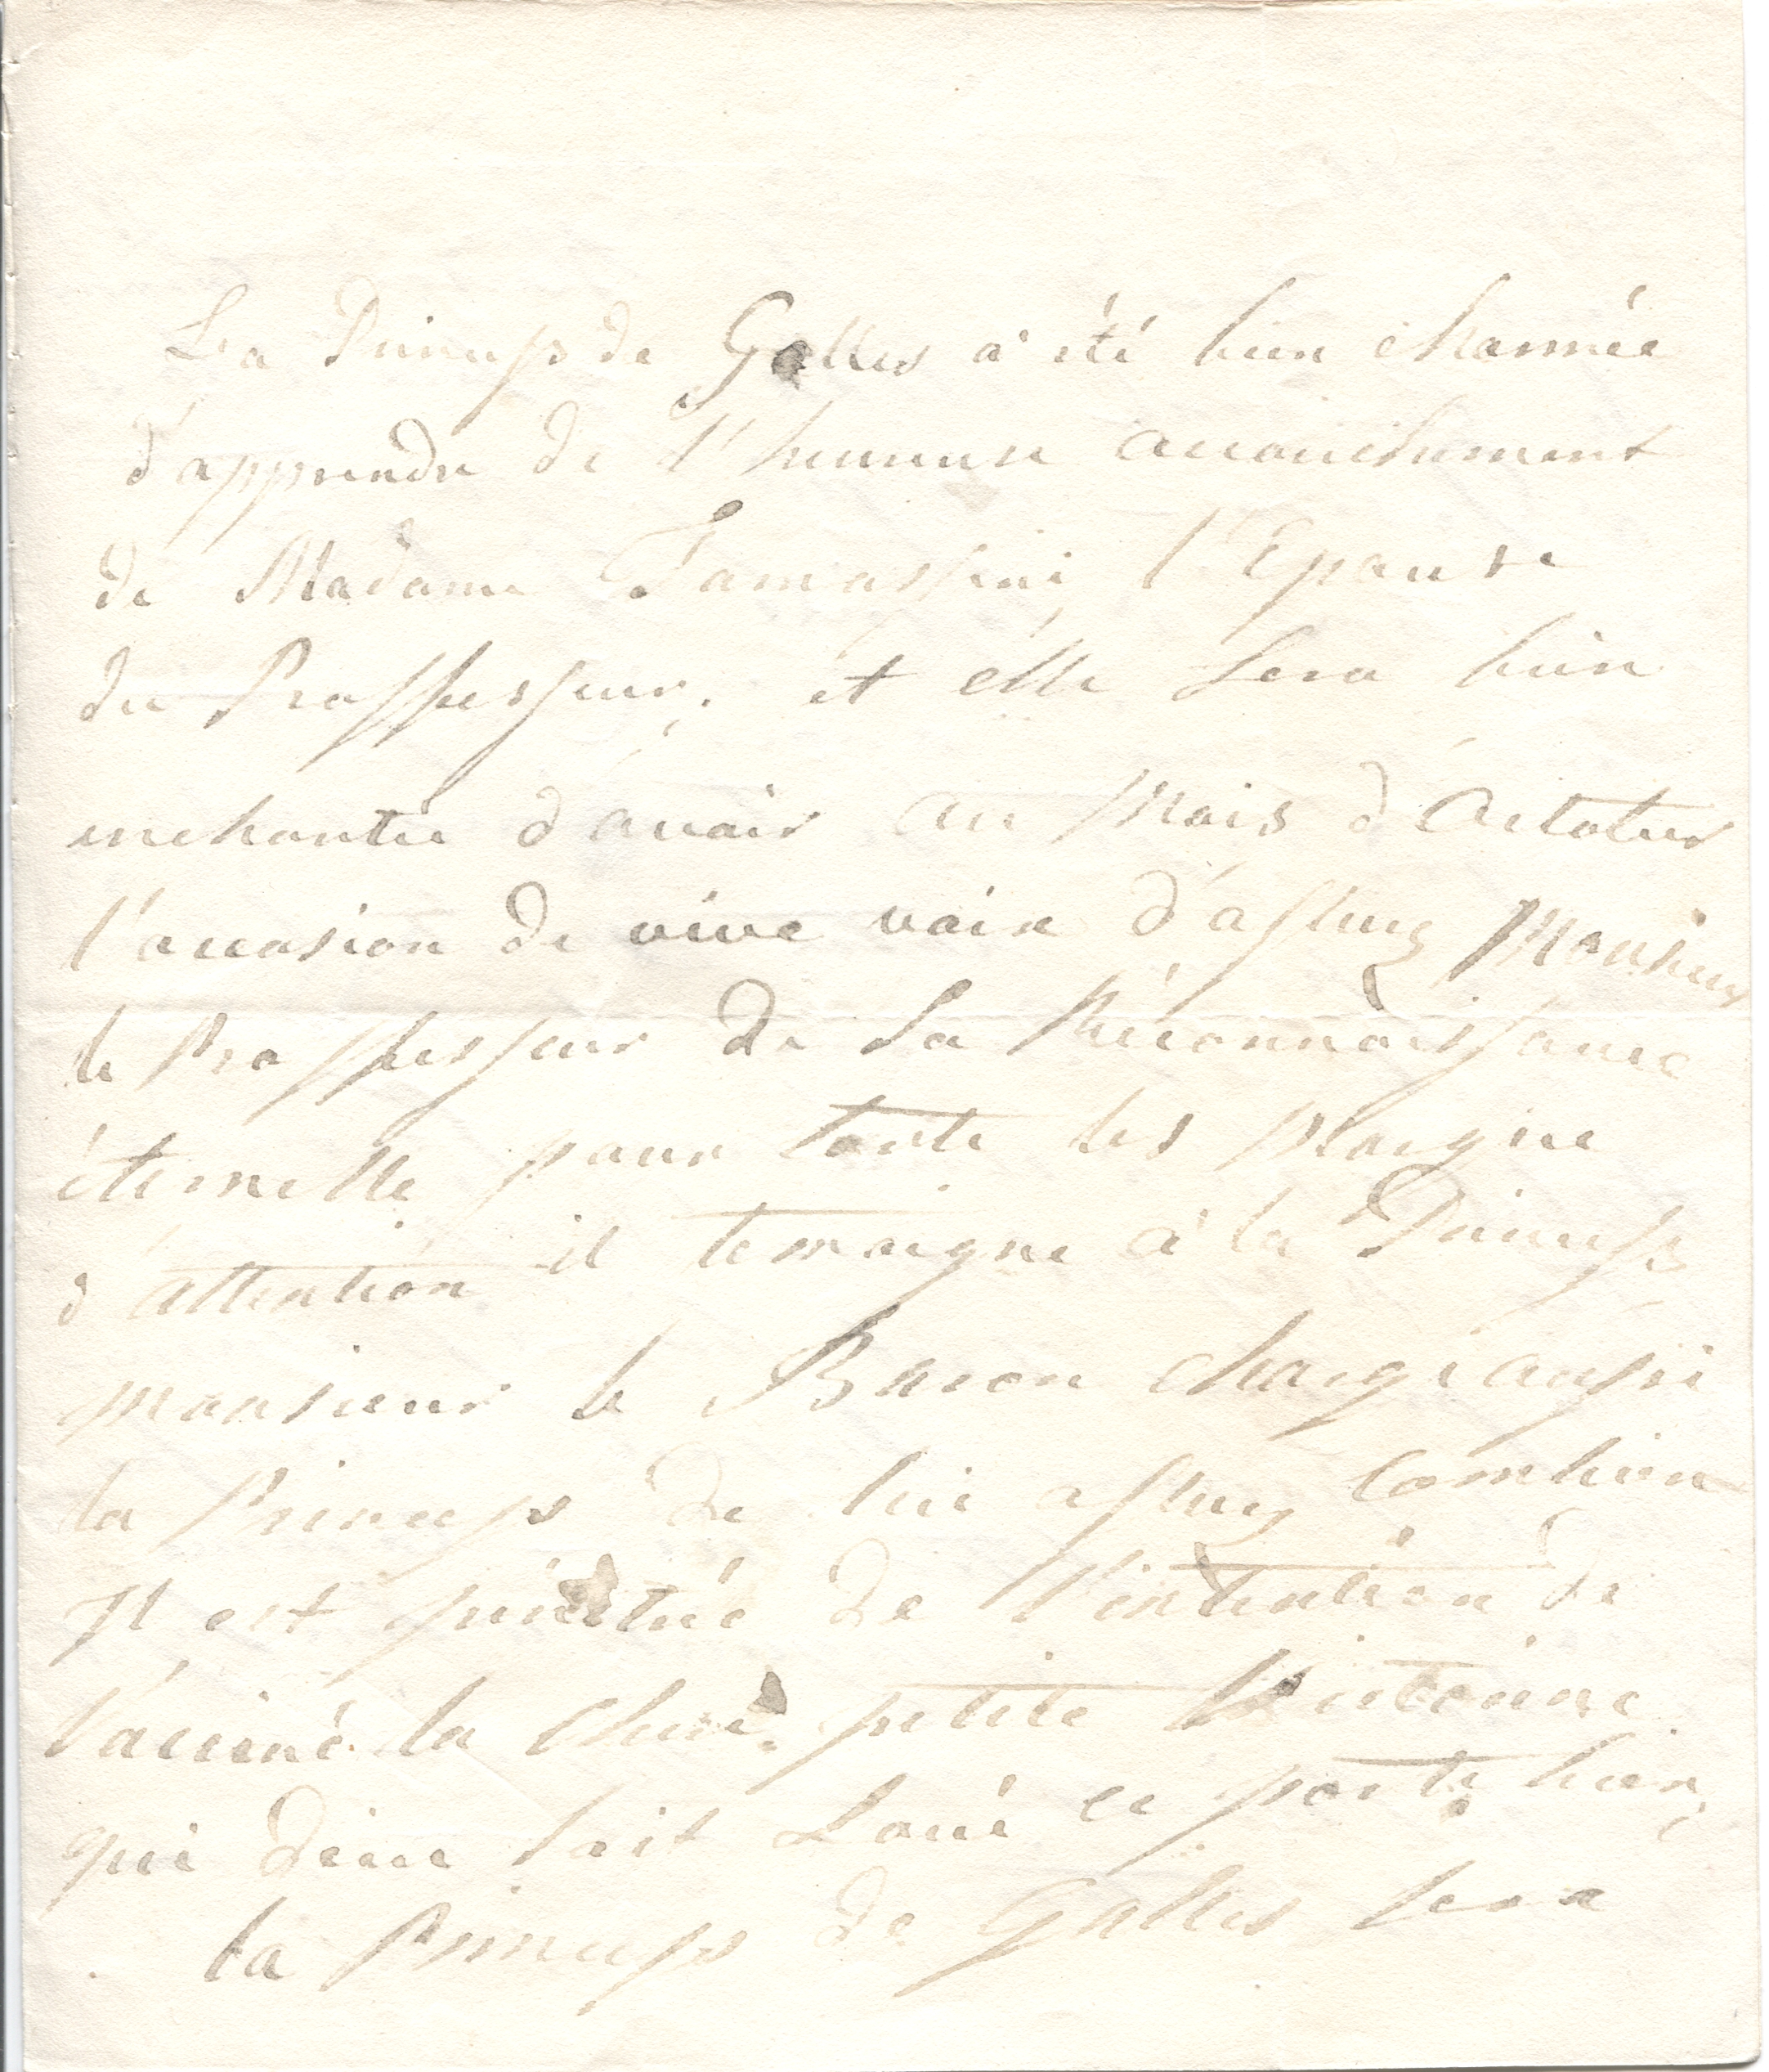 La Princess de Galles a été bien charmée
d'apprendre de l'heureuse accouchement
de Madame Tamassini, l'Epouse
du Proffesseur, et elle sera bien
enchantée d'avoir au Mois d'Octobre
l'occasion de vive voix d'assurez Monsieur
le Proffesseur de sa Réconnoissance
éternelle pour toute les
d'attention il temoigne à la Princess
monsieur le Baron charge aussi
la Princess de lui assurez Combien
Il est de l'intention de
Vacciné la chere petite Victorine
qui dieu soit Loué ce porte bien,
la Princess de Galles sera